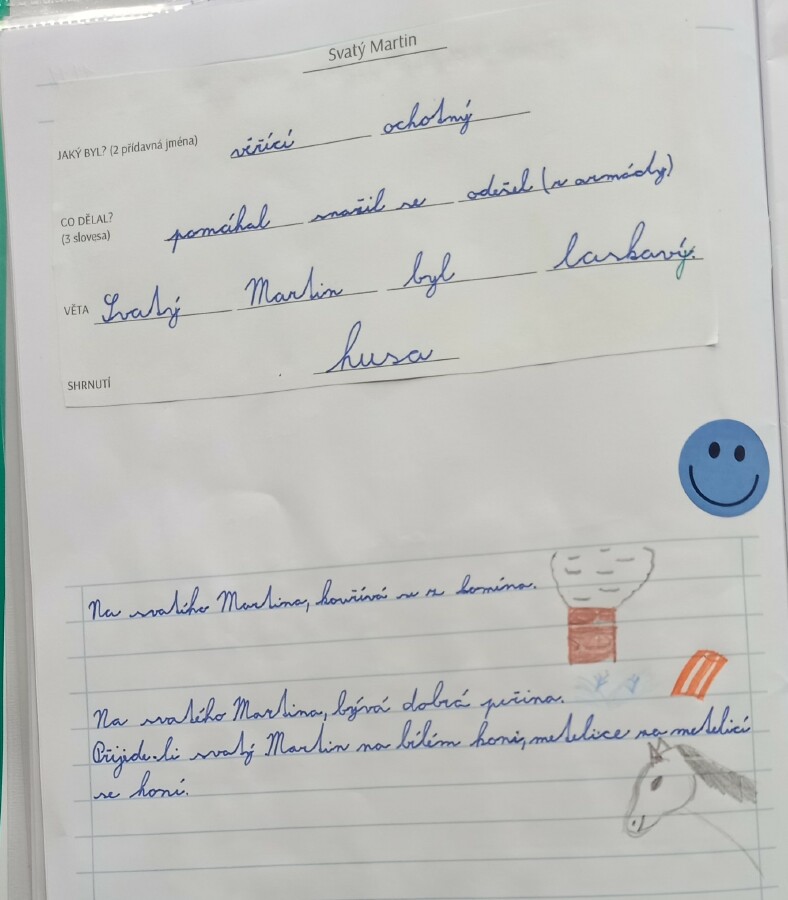 Svatý Martin
JAKÝ BYL? (2 přídavná jména) věřící ochotný
CO DĚLAL? pomáhal snažil se odešel (z armády)
(3 slovesa)
VĚTA Svatý Martin byl laskavý.
SHRNUTÍ husa
Na svatého Martina, kouřívá se z komína.
Na svatého Martina, bývá dobrá peřina.
Přijde-li svatý Martin na bílém koni, metelice za metelicí
se honí.